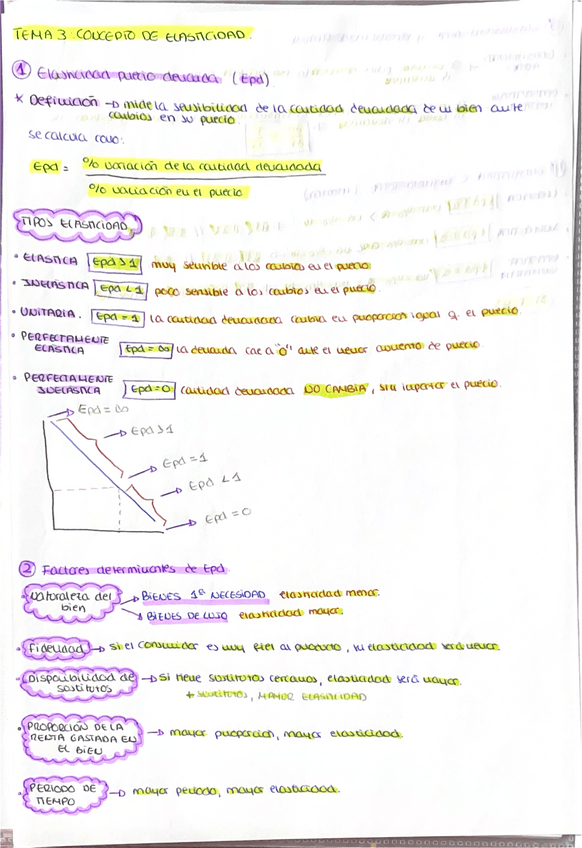 TEMA 3 CONCEPTO DE ELASTICIDAD.
① Elasticidad precio demanda (Epd)
* Definición → mide la sensibilidad de la cantidad demandada de un bien ante
cambios en su precio.
se calcula como:
Epd = % variación de la cantidad demandada
% variación en el precio
TIPOS ELASTICIDAD
• ELÁSTICA Epd > 1 muy sensible a los cambios en el precio.
• INELÁSTICA Epd < 1 poco sensible a los cambios en el precio.
• UNITARIA. Epd = 1 la cantidad demandada cambia en proporción igual q. el precio.
• PERFECTAMENTE
ELÁSTICA Epd = ∞ la demanda cae a "0" ante el menor aumento de precio.
• PERFECTAMENTE
INELÁSTICA Epd = 0 cantidad demandada NO CAMBIA, sin importar el precio.
→ Epd = ∞
→ Epd > 1
→ Epd = 1
→ Epd < 1
→ Epd = 0
② Factores determinantes de Epd
• Naturaleza del
bien
→ BIENES 1ª NECESIDAD elasticidad menor.
→ BIENES DE LUJO elasticidad mayor.
• Fidelidad → si el consumidor es muy fiel al producto, su elasticidad será menor.
• Disponibilidad de
sustitutos
→ Si tiene sustitutos cercanos, elasticidad será mayor.
+ sustitutos, MAYOR ELASTICIDAD
• PROPORCIÓN DE LA
RENTA GASTADA EN
EL BIEN
→ mayor proporción, mayor elasticidad.
• PERIODO DE
TIEMPO
→ mayor periodo, mayor elasticidad.